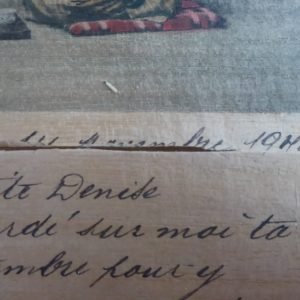 Novembre 19
te Denise
rdé sur moi ta
mbre pour y